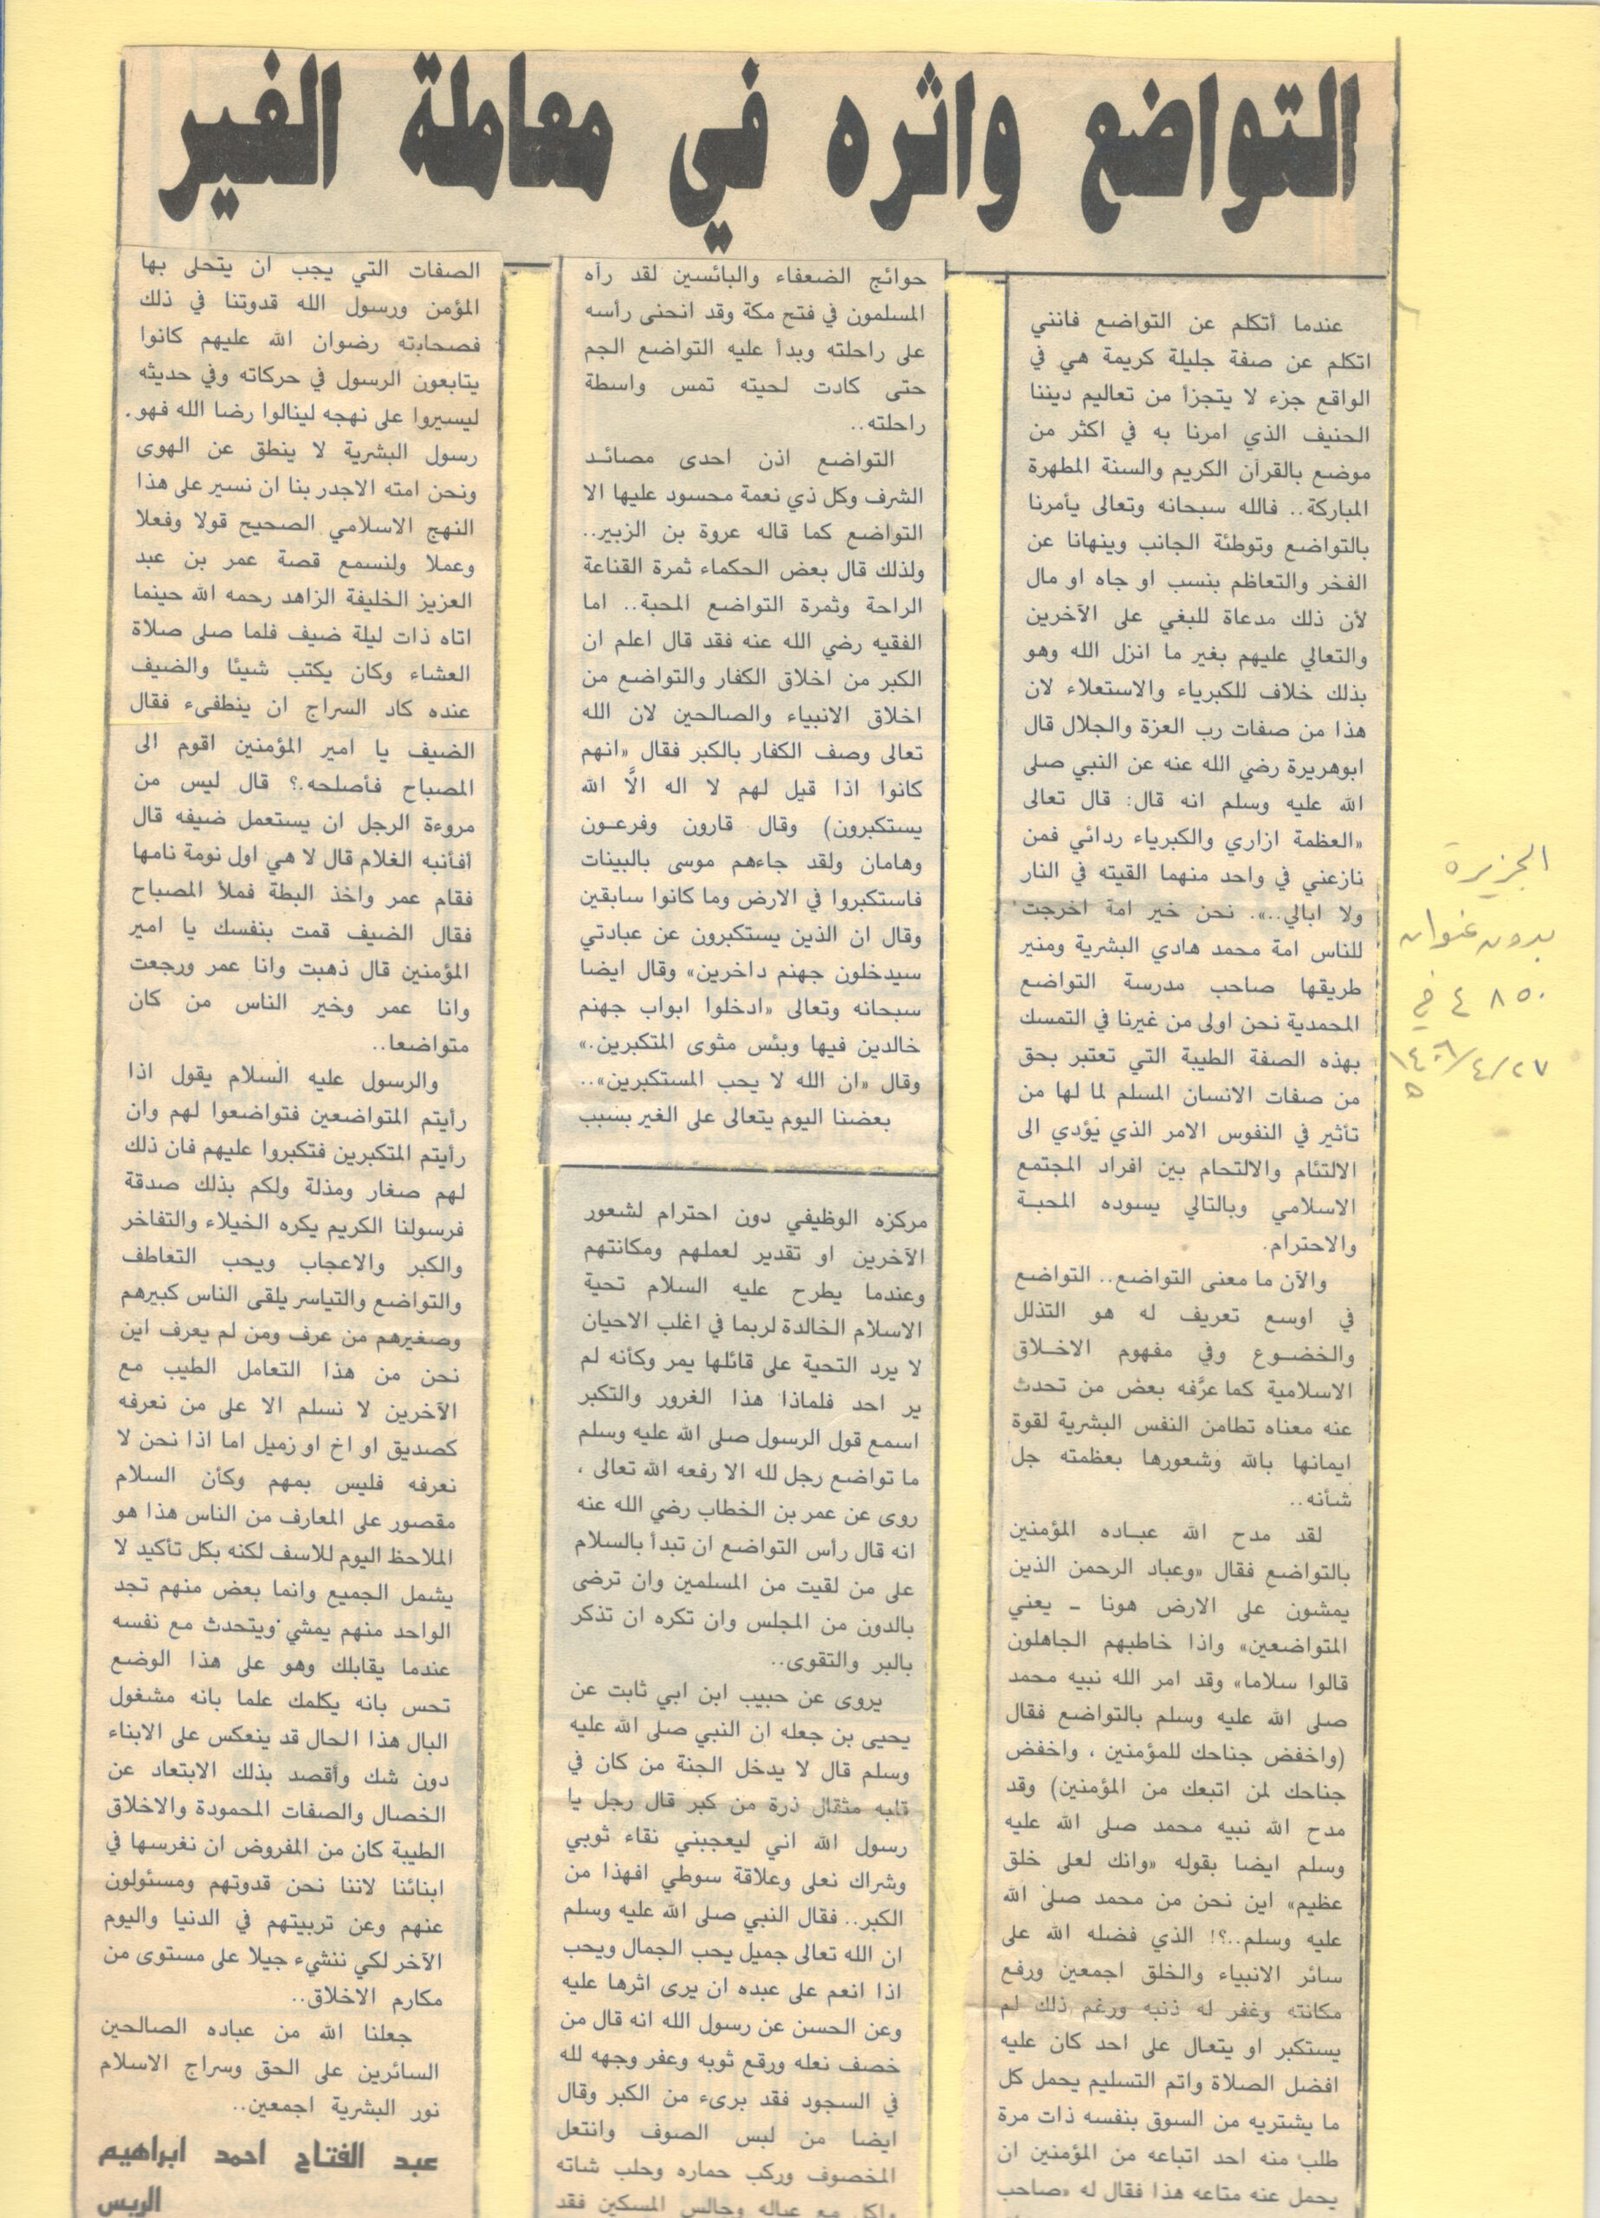 التواضع واثره في معاملة الغير
عندما أتكلم عن التواضع فانني
اتكلم عن صفة جليلة كريمة هي في
الواقع جزء لا يتجزأ من تعاليم ديننا
الحنيف الذي امرنا به في اكثر من
موضع بالقرآن الكريم والسنة المطهرة
المباركة.. فالله سبحانه وتعالى يأمرنا
بالتواضع وتوطئة الجانب وينهانا عن
الفخر والتعاظم بنسب او جاه او مال
لأن ذلك مدعاة للبغي على الآخرين
والتعالي عليهم بغير ما انزل الله وهو
بذلك خلاف للكبرياء والاستعلاء لان
هذا من صفات رب العزة والجلال قال
ابوهريرة رضي الله عنه عن النبي صلى
الله عليه وسلم انه قال: قال تعالى
«العظمة ازاري والكبرياء ردائي فمن
نازعني في واحد منهما القيته في النار
ولا ابالي..». نحن خير امة اخرجت
للناس امة محمد هادي البشرية ومنير
طريقها صاحب مدرسة التواضع
المحمدية نحن اولى من غيرنا في التمسك
بهذه الصفة الطيبة التي تعتبر بحق
من صفات الانسان المسلم لما لها من
تأثير في النفوس الامر الذي يؤدي الى
الالتئام والالتحام بين افراد المجتمع
الاسلامي وبالتالي يسوده المحبة
والاحترام.
والآن ما معنى التواضع.. التواضع
في اوسع تعريف له هو التذلل
والخضوع وفي مفهوم الاخلاق
الاسلامية كما عرَّفه بعض من تحدث
عنه معناه تطامن النفس البشرية لقوة
ايمانها بالله وشعورها بعظمته جل
شأنه..
لقد مدح الله عباده المؤمنين
بالتواضع فقال «وعباد الرحمن الذين
يمشون على الارض هونا ـ يعني
المتواضعين» واذا خاطبهم الجاهلون
قالوا سلاما» وقد امر الله نبيه محمد
صلى الله عليه وسلم بالتواضع فقال
(واخفض جناحك للمؤمنين ، واخفض
جناحك لمن اتبعك من المؤمنين) وقد
مدح الله نبيه محمد صلى الله عليه
وسلم ايضا بقوله «وانك لعلى خلق
عظيم» اين نحن من محمد صلى الله
عليه وسلم..؟! الذي فضله الله على
سائر الانبياء والخلق اجمعين ورفع
مكانته وغفر له ذنبه ورغم ذلك لم
يستكبر او يتعال على احد كان عليه
افضل الصلاة واتم التسليم يحمل كل
ما يشتريه من السوق بنفسه ذات مرة
طلب منه احد اتباعه من المؤمنين ان
يحمل عنه متاعه هذا فقال له «صاحب
حوائج الضعفاء والبائسين لقد رأه
المسلمون في فتح مكة وقد انحنى رأسه
على راحلته وبدأ عليه التواضع الجم
حتى كادت لحيته تمس واسطة
راحلته..
التواضع اذن احدى مصائد
الشرف وكل ذي نعمة محسود عليها الا
التواضع كما قاله عروة بن الزبير..
ولذلك قال بعض الحكماء ثمرة القناعة
الراحة وثمرة التواضع المحبة.. اما
الفقيه رضي الله عنه فقد قال اعلم ان
الكبر من اخلاق الكفار والتواضع من
اخلاق الانبياء والصالحين لان الله
تعالى وصف الكفار بالكبر فقال «انهم
كانوا اذا قيل لهم لا اله الاَّ الله
يستكبرون) وقال قارون وفرعون
وهامان ولقد جاءهم موسى بالبينات
فاستكبروا في الارض وما كانوا سابقين
وقال ان الذين يستكبرون عن عبادتي
سيدخلون جهنم داخرين» وقال ايضا
سبحانه وتعالى «ادخلوا ابواب جهنم
خالدين فيها وبئس مثوى المتكبرين.»
وقال «ان الله لا يحب المستكبرين»..
بعضنا اليوم يتعالى على الغير بسبب
مركزه الوظيفي دون احترام لشعور
الآخرين او تقدير لعملهم ومكانتهم
وعندما يطرح عليه السلام تحية
الاسلام الخالدة لربما في اغلب الاحيان
لا يرد التحية على قائلها يمر وكأنه لم
ير احد فلماذا هذا الغرور والتكبر
اسمع قول الرسول صلى الله عليه وسلم
ما تواضع رجل لله الا رفعه الله تعالى ،
روى عن عمر بن الخطاب رضي الله عنه
انه قال رأس التواضع ان تبدأ بالسلام
على من لقيت من المسلمين وان ترضى
بالدون من المجلس وان تكره ان تذكر
بالبر والتقوى..
يروى عن حبيب ابن ابي ثابت عن
يحيى بن جعله ان النبي صلى الله عليه
وسلم قال لا يدخل الجنة من كان في
قلبه مثقال ذرة من كبر قال رجل يا
رسول الله اني ليعجبني نقاء ثوبي
وشراك نعلى وعلاقة سوطي افهذا من
الكبر.. فقال النبي صلى الله عليه وسلم
ان الله تعالى جميل يحب الجمال ويحب
اذا انعم على عبده ان يرى اثرها عليه
وعن الحسن عن رسول الله انه قال من
خصف نعله ورقع ثوبه وعفر وجهه لله
في السجود فقد برىء من الكبر وقال
ايضا من لبس الصوف وانتعل
المخصوف وركب حماره وحلب شاته
واكل مع عياله وجالس المسكين فقد
الصفات التي يجب ان يتحلى بها
المؤمن ورسول الله قدوتنا في ذلك
فصحابته رضوان الله عليهم كانوا
يتابعون الرسول في حركاته وفي حديثه
ليسيروا على نهجه لينالوا رضا الله فهو.
رسول البشرية لا ينطق عن الهوى
ونحن امته الاجدر بنا ان نسير على هذا
النهج الاسلامي الصحيح قولا وفعلا
وعملا ولنسمع قصة عمر بن عبد
العزيز الخليفة الزاهد رحمه الله حينما
اتاه ذات ليلة ضيف فلما صلى صلاة
العشاء وكان يكتب شيئا والضيف
عنده كاد السراج ان ينطفىء فقال
الضيف يا امير المؤمنين اقوم الى
المصباح فأصلحه.؟ قال ليس من
مروءة الرجل ان يستعمل ضيفه قال
أفأنبه الغلام قال لا هي اول نومة نامها
فقام عمر واخذ البطة فملأ المصباح
فقال الضيف قمت بنفسك يا امير
المؤمنين قال ذهبت وانا عمر ورجعت
وانا عمر وخير الناس من كان
متواضعا..
والرسول عليه السلام يقول اذا
رأيتم المتواضعين فتواضعوا لهم وان
رأيتم المتكبرين فتكبروا عليهم فان ذلك
لهم صغار ومذلة ولكم بذلك صدقة
فرسولنا الكريم يكره الخيلاء والتفاخر
والكبر والاعجاب ويحب التعاطف
والتواضع والتياسر يلقى الناس كبيرهم
وصغيرهم من عرف ومن لم يعرف اين
نحن من هذا التعامل الطيب مع
الآخرين لا نسلم الا على من نعرفه
كصديق او اخ او زميل اما اذا نحن لا
نعرفه فليس بمهم وكأن السلام
مقصور على المعارف من الناس هذا هو
الملاحظ اليوم للاسف لكنه بكل تأكيد لا
يشمل الجميع وانما بعض منهم تجد
الواحد منهم يمشي ويتحدث مع نفسه
عندما يقابلك وهو على هذا الوضع
تحس بانه يكلمك علما بانه مشغول
البال هذا الحال قد ينعكس على الابناء
دون شك وأقصد بذلك الابتعاد عن
الخصال والصفات المحمودة والاخلاق
الطيبة كان من المفروض ان نغرسها في
ابنائنا لاننا نحن قدوتهم ومسئولون
عنهم وعن تربيتهم في الدنيا واليوم
الآخر لكي ننشيء جيلا على مستوى من
مكارم الاخلاق..
جعلنا الله من عباده الصالحين
السائرين على الحق وسراج الاسلام
نور البشرية اجمعين..
عبد الفتاح احمد ابراهيم
الريس
الجزيرة
بدون عنوان
٤٨٥٠ في
١٤٠٦/٤/٢٧
ه